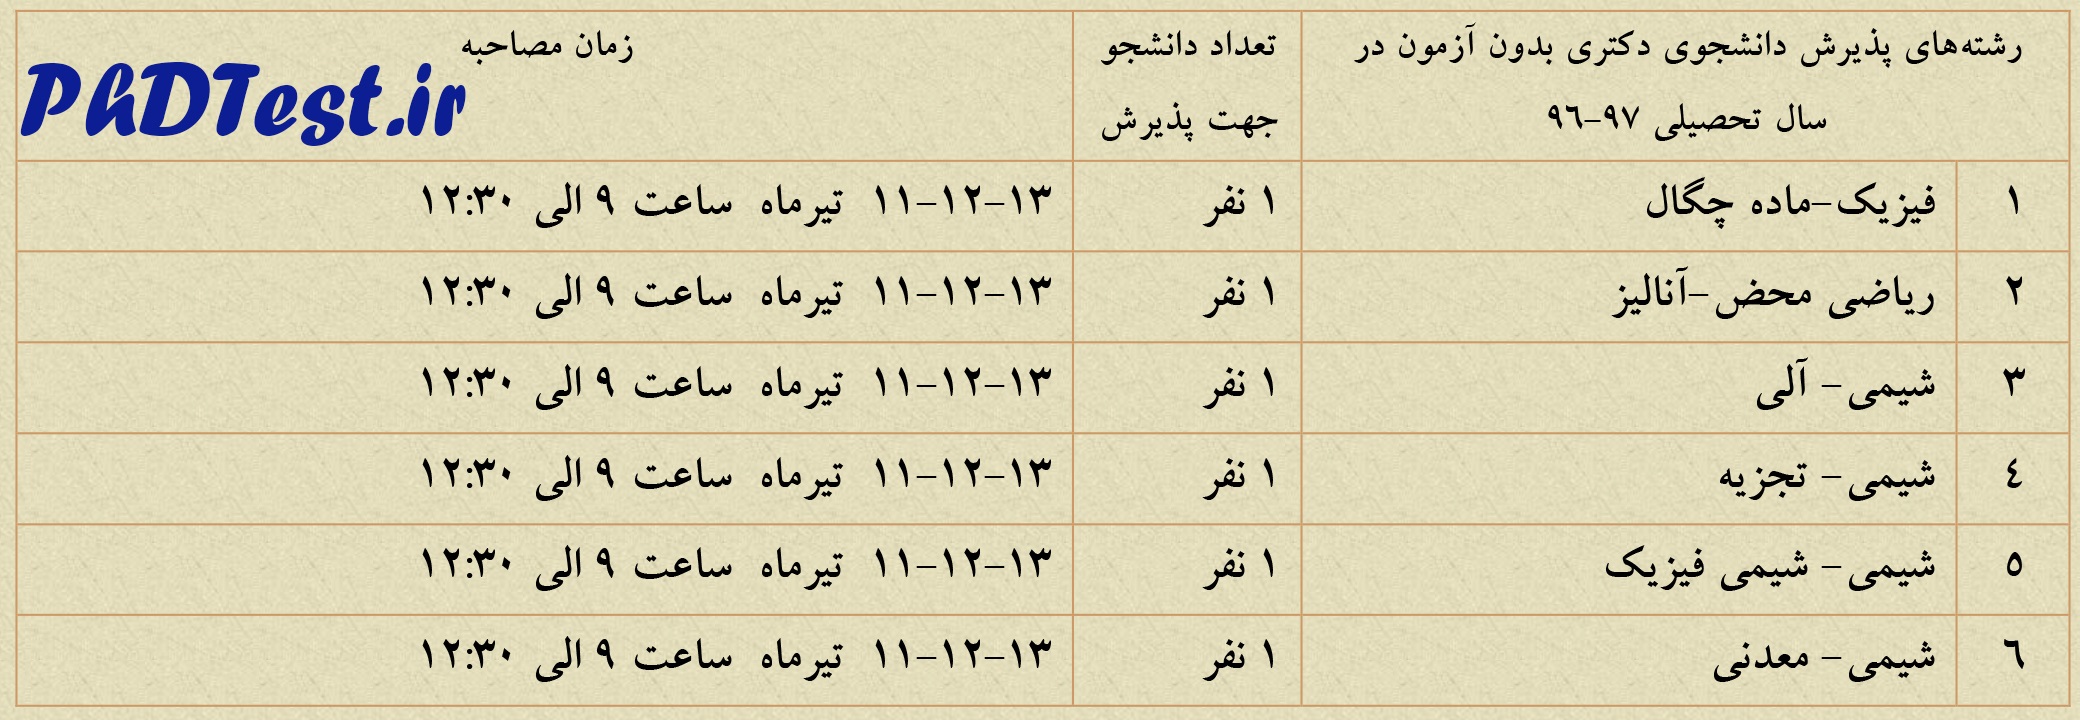 رشته‌های پذیرش دانشجوی دکتری بدون آزمون در
سال تحصیلی ۹۷-۹۶
تعداد دانشجو
جهت پذیرش
زمان مصاحبه
PhDTest.ir
۱ فیزیک-ماده چگال ۱ نفر ۱۳-۱۲-۱۱ تیرماه ساعت ۹ الی ۱۲:۳۰
۲ ریاضی محض-آنالیز ۱ نفر ۱۳-۱۲-۱۱ تیرماه ساعت ۹ الی ۱۲:۳۰
۳ شیمی- آلی ۱ نفر ۱۳-۱۲-۱۱ تیرماه ساعت ۹ الی ۱۲:۳۰
٤ شیمی- تجزیه ۱ نفر ۱۳-۱۲-۱۱ تیرماه ساعت ۹ الی ۱۲:۳۰
٥ شیمی- شیمی فیزیک ۱ نفر ۱۳-۱۲-۱۱ تیرماه ساعت ۹ الی ۱۲:۳۰
٦ شیمی- معدنی ۱ نفر ۱۳-۱۲-۱۱ تیرماه ساعت ۹ الی ۱۲:۳۰